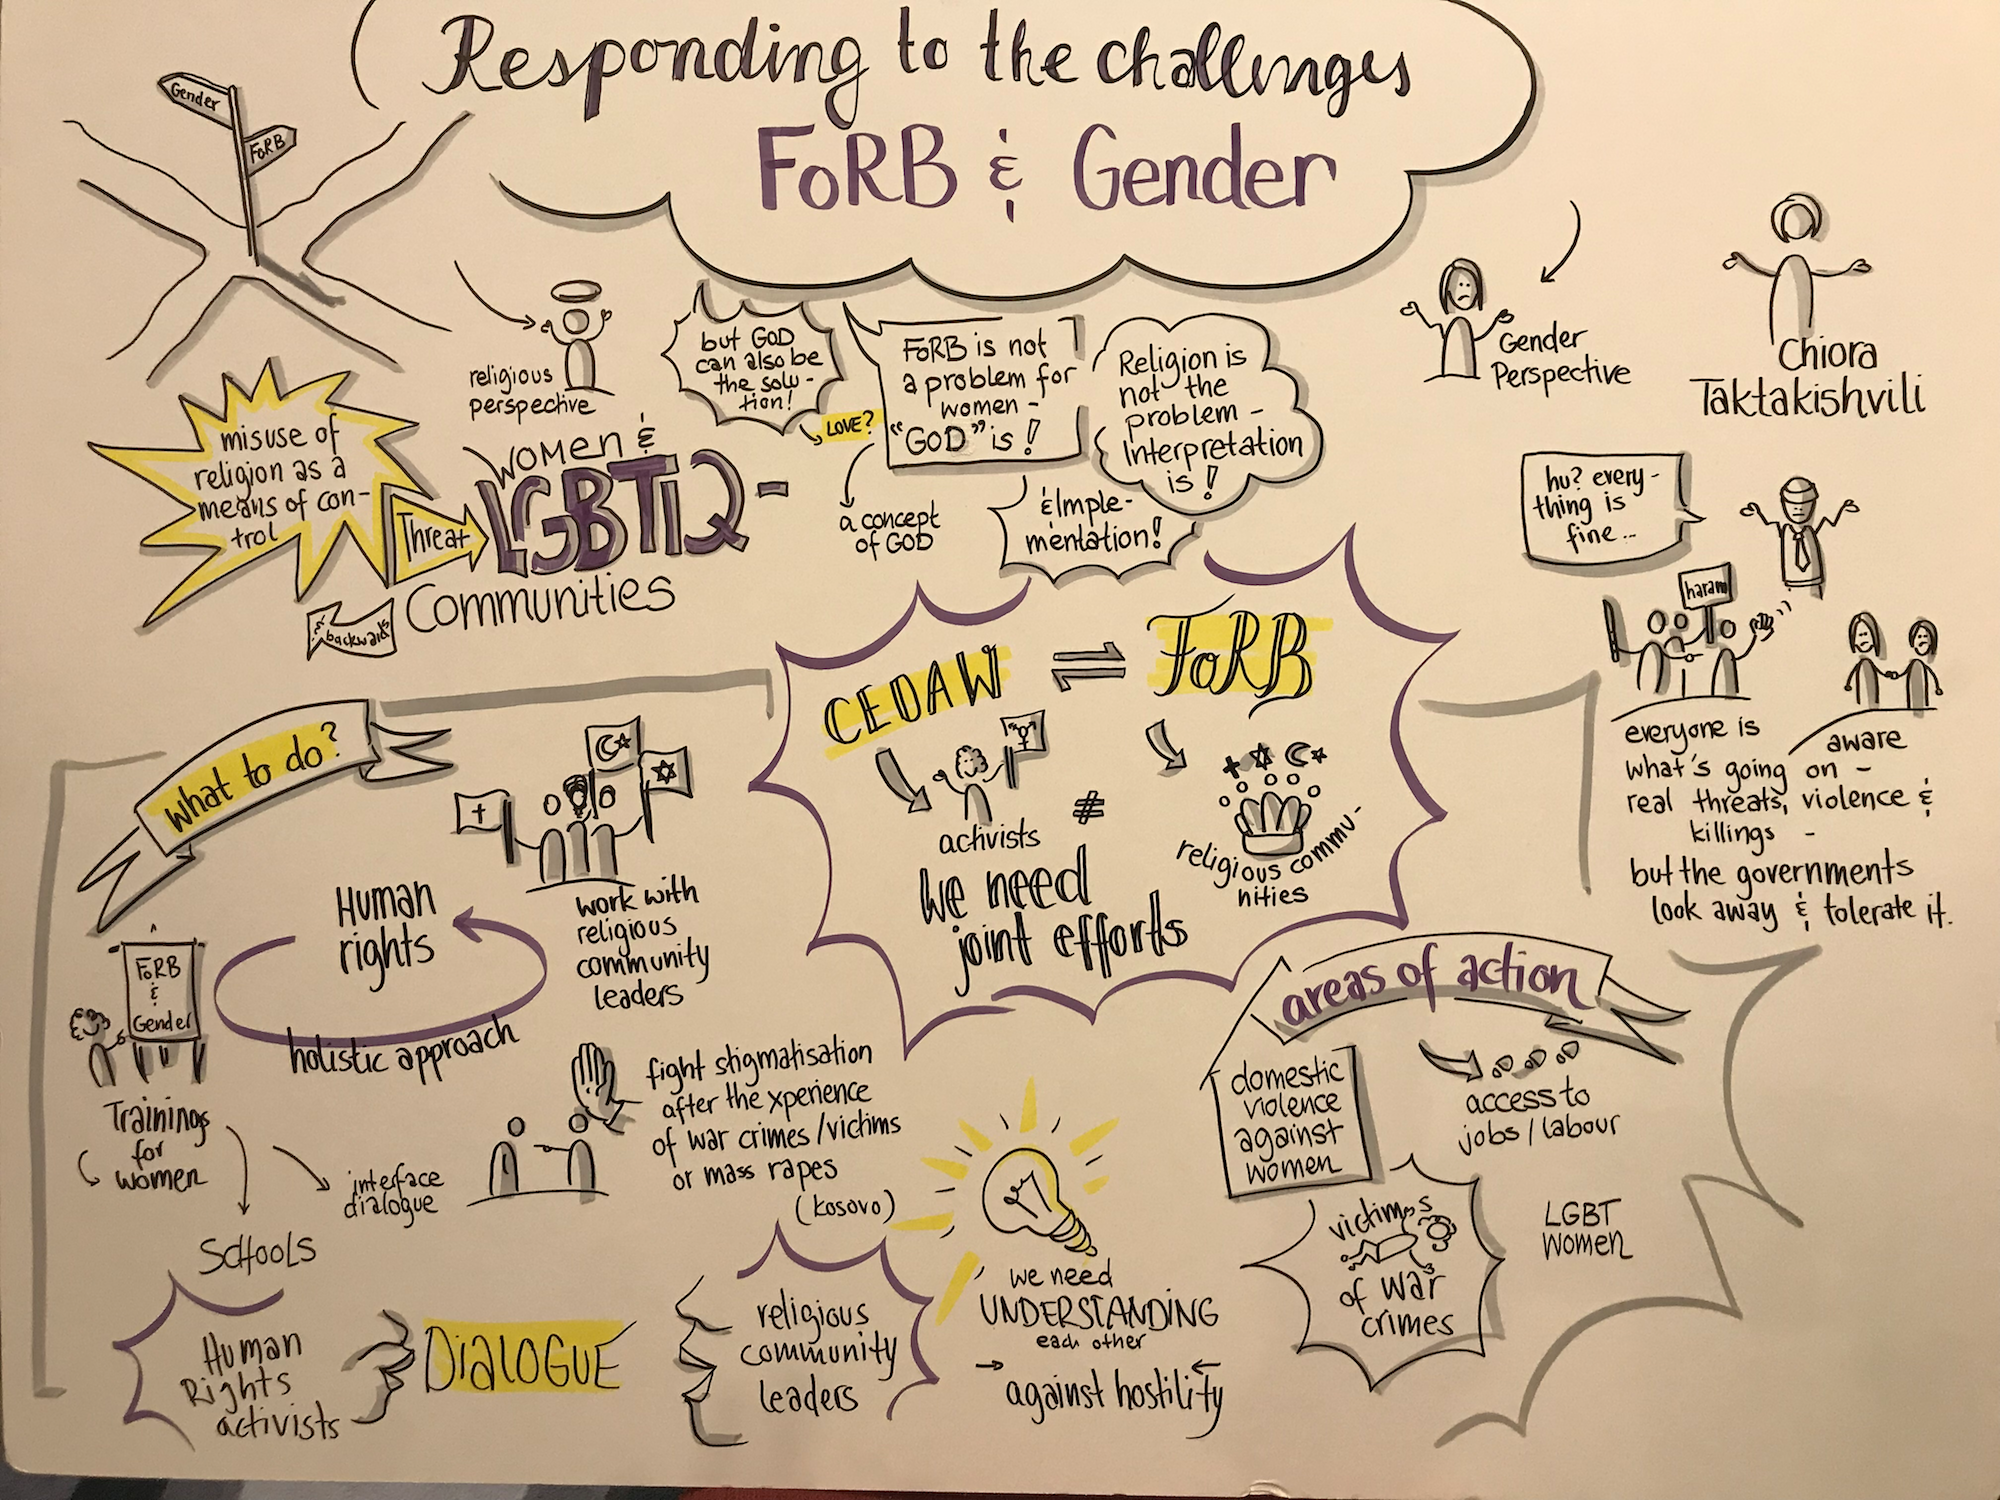 Responding to the challenges
FoRB & Gender
Gender
FoRB
religious
perspective
but GOD
can also be
the solu-
tion!
LOVE?
FoRB is not
a problem for
women -
"GOD" is!
a concept
of GOD
Religion is
not the
problem -
Interpretation
is!
& Imple-
mentation!
Gender
Perspective
Chiora
Taktakishvili
misuse of
religion as a
means of con-
trol
Threat
WOMEN &
LGBTIQ-
Communities
& backwards
hu? every-
thing is
fine...
haram
everyone is
aware
what's going on -
real threats, violence &
killings -
but the governments
look away & tolerate it.
CEDAW ⇌ FoRB
activists
≠
religious commu-
nities
We need
joint efforts
what to do?
Human
rights
holistic approach
work with
religious
community
leaders
FoRB
&
Gender
Trainings
for
women
SCHOOLS
interface
dialogue
fight stigmatisation
after the xperience
of war crimes/victims
or mass rapes
(Kosovo)
Human
Rights
activists
DIALOGUE
religious
community
leaders
we need
UNDERSTANDING
each other
→ ←
against hostility
areas of action
domestic
violence
against
women
access to
jobs / labour
victims
of war
crimes
LGBT
WOMEN